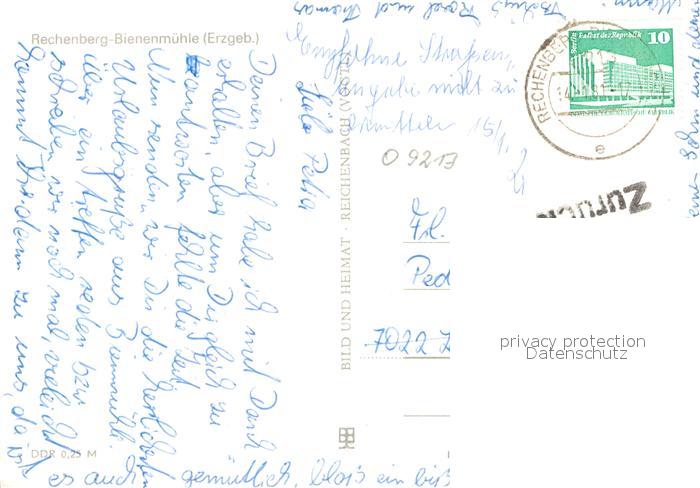 Rechenberg-Bienenmühle (Erzgeb.)
Liebe Petra
Deinen Brief habe ich mit Dank
erhalten, aber um Dir gleich zu
antworten fehlte die Zeit.
Nun senden wir Dir die herzlichsten
Urlaubsgrüße aus Bienmühle.
Über ein treffen reden bzw.
schreiben wir noch mal, vieleicht
kommst Du dann zu uns, da ist
es auch gemütlich, bloß ein biß
und Thomas
ohne Straßen
angabe nicht zu
ermitteln 15/1.
O 9213
BILD UND HEIMAT · REICHENBACH (VOGTL)
Berlin, Palast der Republik
10
DEUTSCHE DEMOKRATISCHE REPUBLIK
RECHENBERG
e
Zurück
Frl.
Ped
7022 L
privacy protection
Datenschutz
DDR 0,25 M